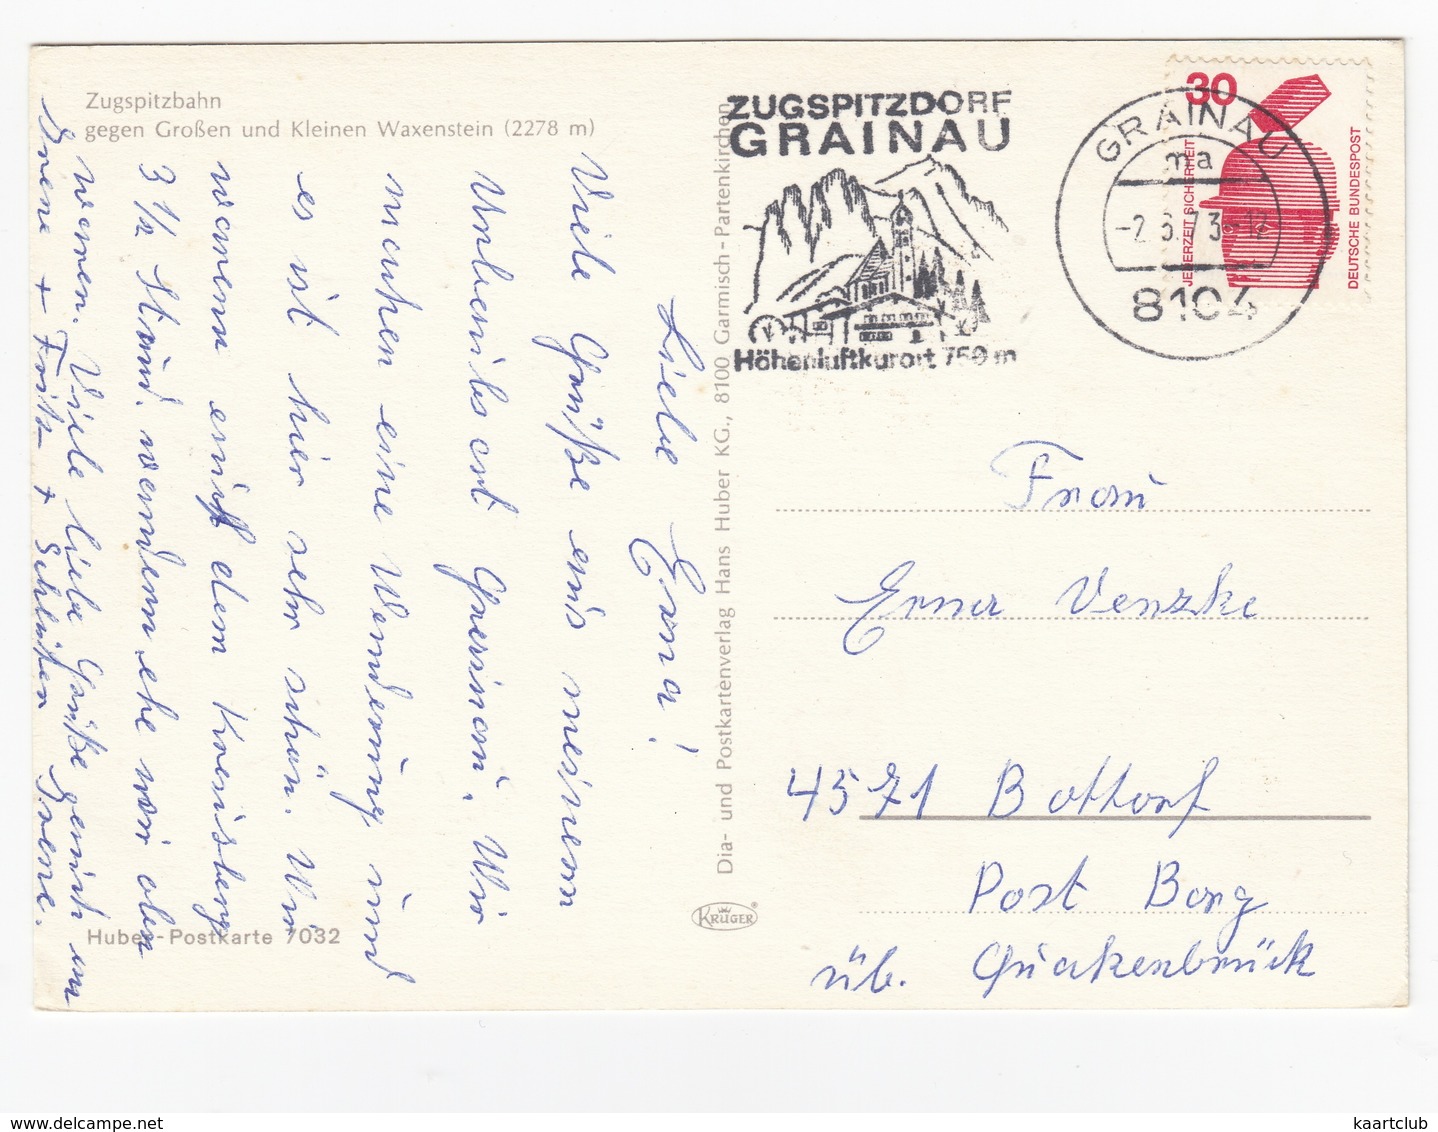 Zugspitzbahn
gegen Großen und Kleinen Waxenstein (2278 m)
Liebe Erna!
Viele Grüße aus meinem
Urlaubsort Grainau. Wir
machen eine Wanderung und
es ist hier sehr schön. Wir
waren auf dem Kreuzberg
3 1/2 Stund. wandern ehe wir oben
waren. Viele liebe Grüße auch an
Irene + Fritz + Irene.
Huber-Postkarte 7032
Dia- und Postkartenverlag Hans Huber KG., 8100 Garmisch-Partenkirchen
KRÜGER
ZUGSPITZDORF
GRAINAU
Höhenluftkurort 750 m
GRAINAU
ma
-2.6.73-12
8104
30
JEDERZEIT SICHERHEIT
DEUTSCHE BUNDESPOST
Frau
Erna Venzke
4571 Bottorf
Post Borg
üb. Quakenbrück
kaartclub